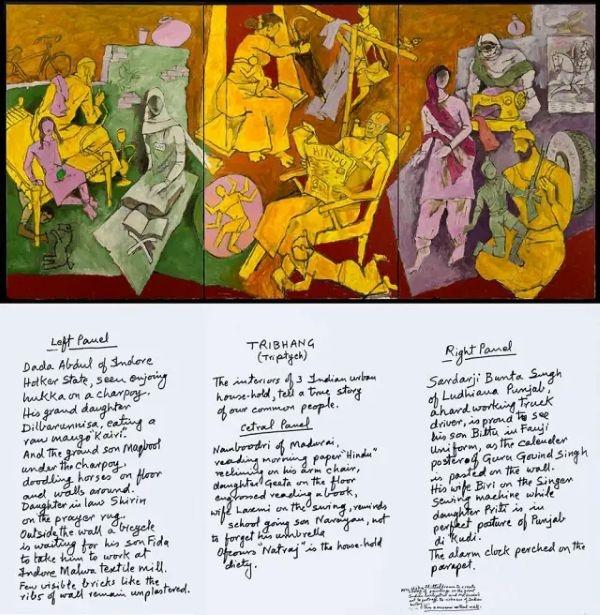 HINDU
Left Panel
Dada Abdul of Indore
Holker State, seen enjoying
hukka on a charpoy.
His grand daughter
Dilbarunnisa, eating a
raw mango "Kairi".
And the grand son Maqbool
under the charpoy
doodling horses on floor
and walls around.
Daughter in law Shirin
on the prayer rug.
Outside the wall a bicycle
is waiting for his son Fida
to take him to work at
Indore Malwa textile mill.
Few visible bricks like the
ribs of wall remain unplastered.
TRIBHANG
(Triptych)
The interiors of 3 Indian urban
house-hold, tell a true story
of our common people.
Cetral Panel
Namboodri of Madurai,
reading morning paper "Hindu"
reclining on his arm chair,
daughter Geeta on the floor
engrossed reading a book,
wife Laxmi on the swing, reminds
school going son Narayan, not
to forget his umbrella
Ofcours "Natraj" is the house-hold
diety.
Right Panel
Sardarji Bunta Singh
of Ludhiana Punjab,
a hard working truck
driver, is proud to see
his son Bittu in Fauji
Uniform, as the calender
poster of Guru Govind Singh
is pasted on the wall.
His wife Biri on the Singer
Sewing machine while
daughter Priti is in
perfect posture of Punjab
di "Kudi.
The alarm clock perched on the
parapet.